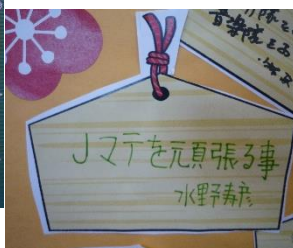 音楽隊
Jマテを頑張る事
水野寿彦